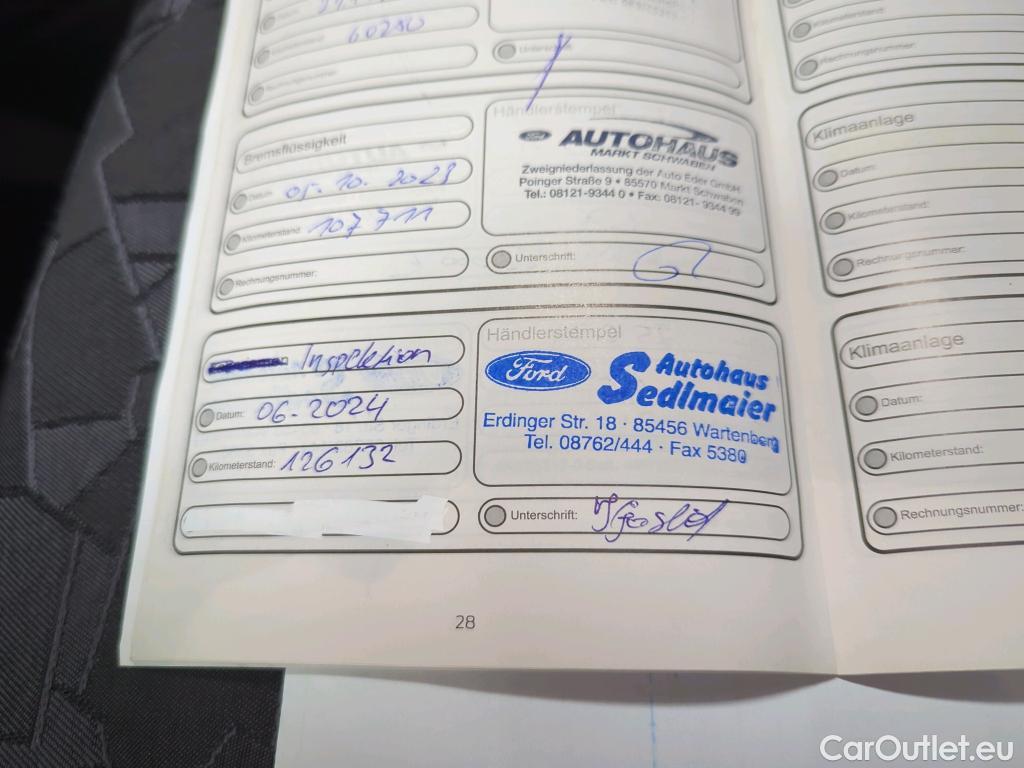 60290
Unterschrift:
Rechnungsnummer:
Bremsflüssigkeit
Datum: 05.10.2023
Kilometerstand: 107 711
Rechnungsnummer:
Händlerstempel
AUTOHAUS
MARKT SCHWABEN
Zweigniederlassung der Auto Eder GmbH
Poinger Straße 9 • 85570 Markt Schwaben
Tel.: 08121-9344 0 • Fax: 08121- 9344 99
Unterschrift:
Inspektion
Datum: 06-2024
Kilometerstand: 126132
Händlerstempel
Ford
Autohaus
Sedlmaier
Erdinger Str. 18 · 85456 Wartenberg
Tel. 08762/444 · Fax 5380
Unterschrift:
28
Kilometerstand:
Rechnungsnummer:
Klimaanlage
Datum:
Kilometerstand:
Rechnungsnummer:
Klimaanlage
Datum:
Kilometerstand:
Rechnungsnummer:
CarOutlet.eu